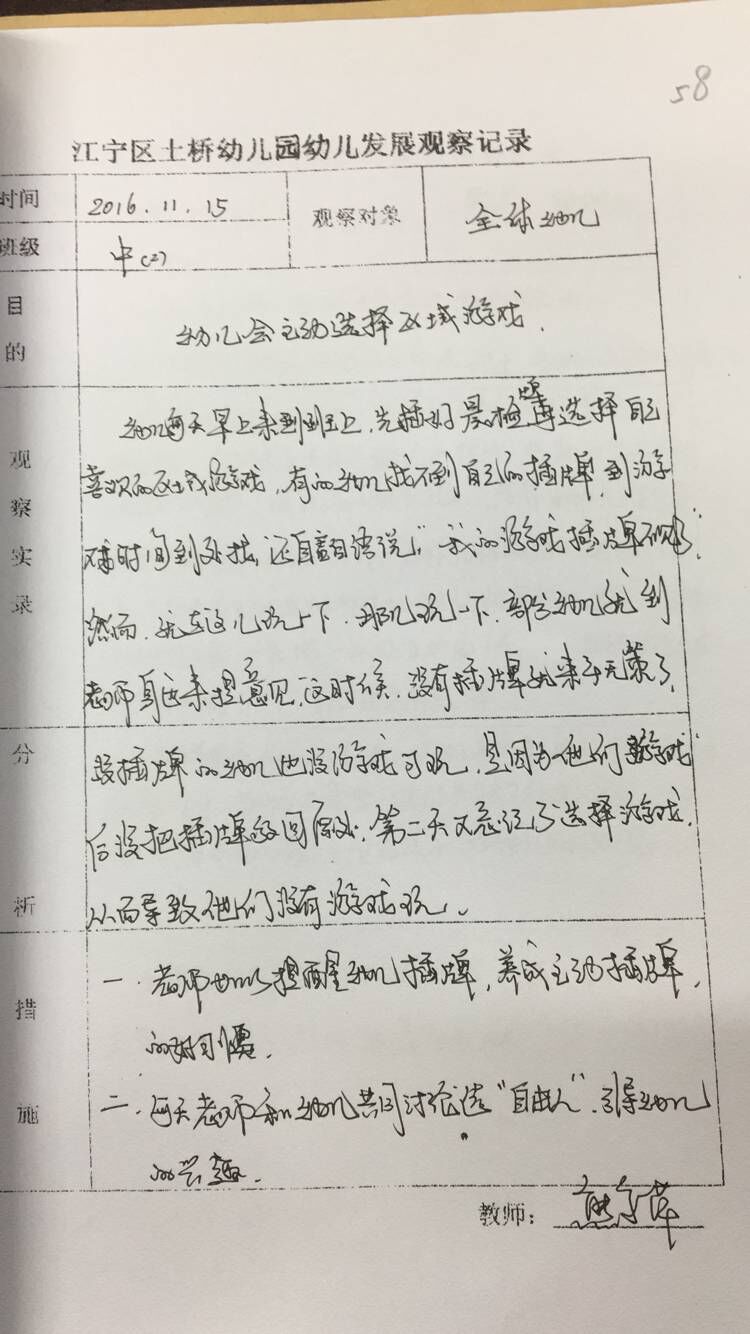 58
江宁区土桥幼儿园幼儿发展观察记录
时间 2016.11.15 观察对象 全体幼儿
班级 中(2)
目的 幼儿会主动选择区域游戏.
观察实录
幼儿每天早上来到班上,先插好晨检牌再选择自己
喜欢的区域游戏,有的幼儿找不到自己的插牌,到游
戏时间到处找,还自言自语说,"我的游戏插牌不见了"
然而,就在这儿玩一下.那儿玩一下.部分幼儿就到
老师身边来提意见,这时候,没有插牌就束手无策了.
分析
没插牌的幼儿也没游戏可玩,是因为他们游戏
后没把插牌放回原处,第二天又忘记了选择游戏,
从而导致他们没有游戏玩。
措施
一.老师加以提醒幼儿插牌,养成主动插牌,
的好习惯.
二.每天老师和幼儿共同讨论选"自由人",引导幼儿
的兴趣.
教师: